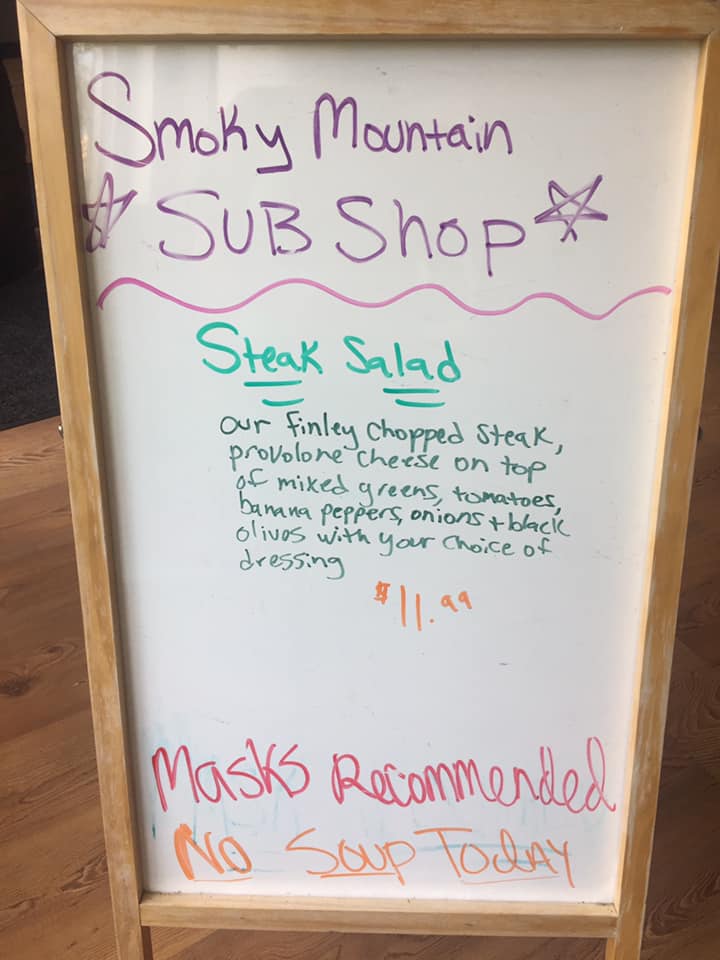 Smoky Mountain
SUB Shop
Steak Salad
our finley chopped steak,
provolone cheese on top
of mixed greens, tomatoes,
banana peppers, onions + black
olives with your choice of
dressing
$11.99
Masks Recommended
No Soup Today